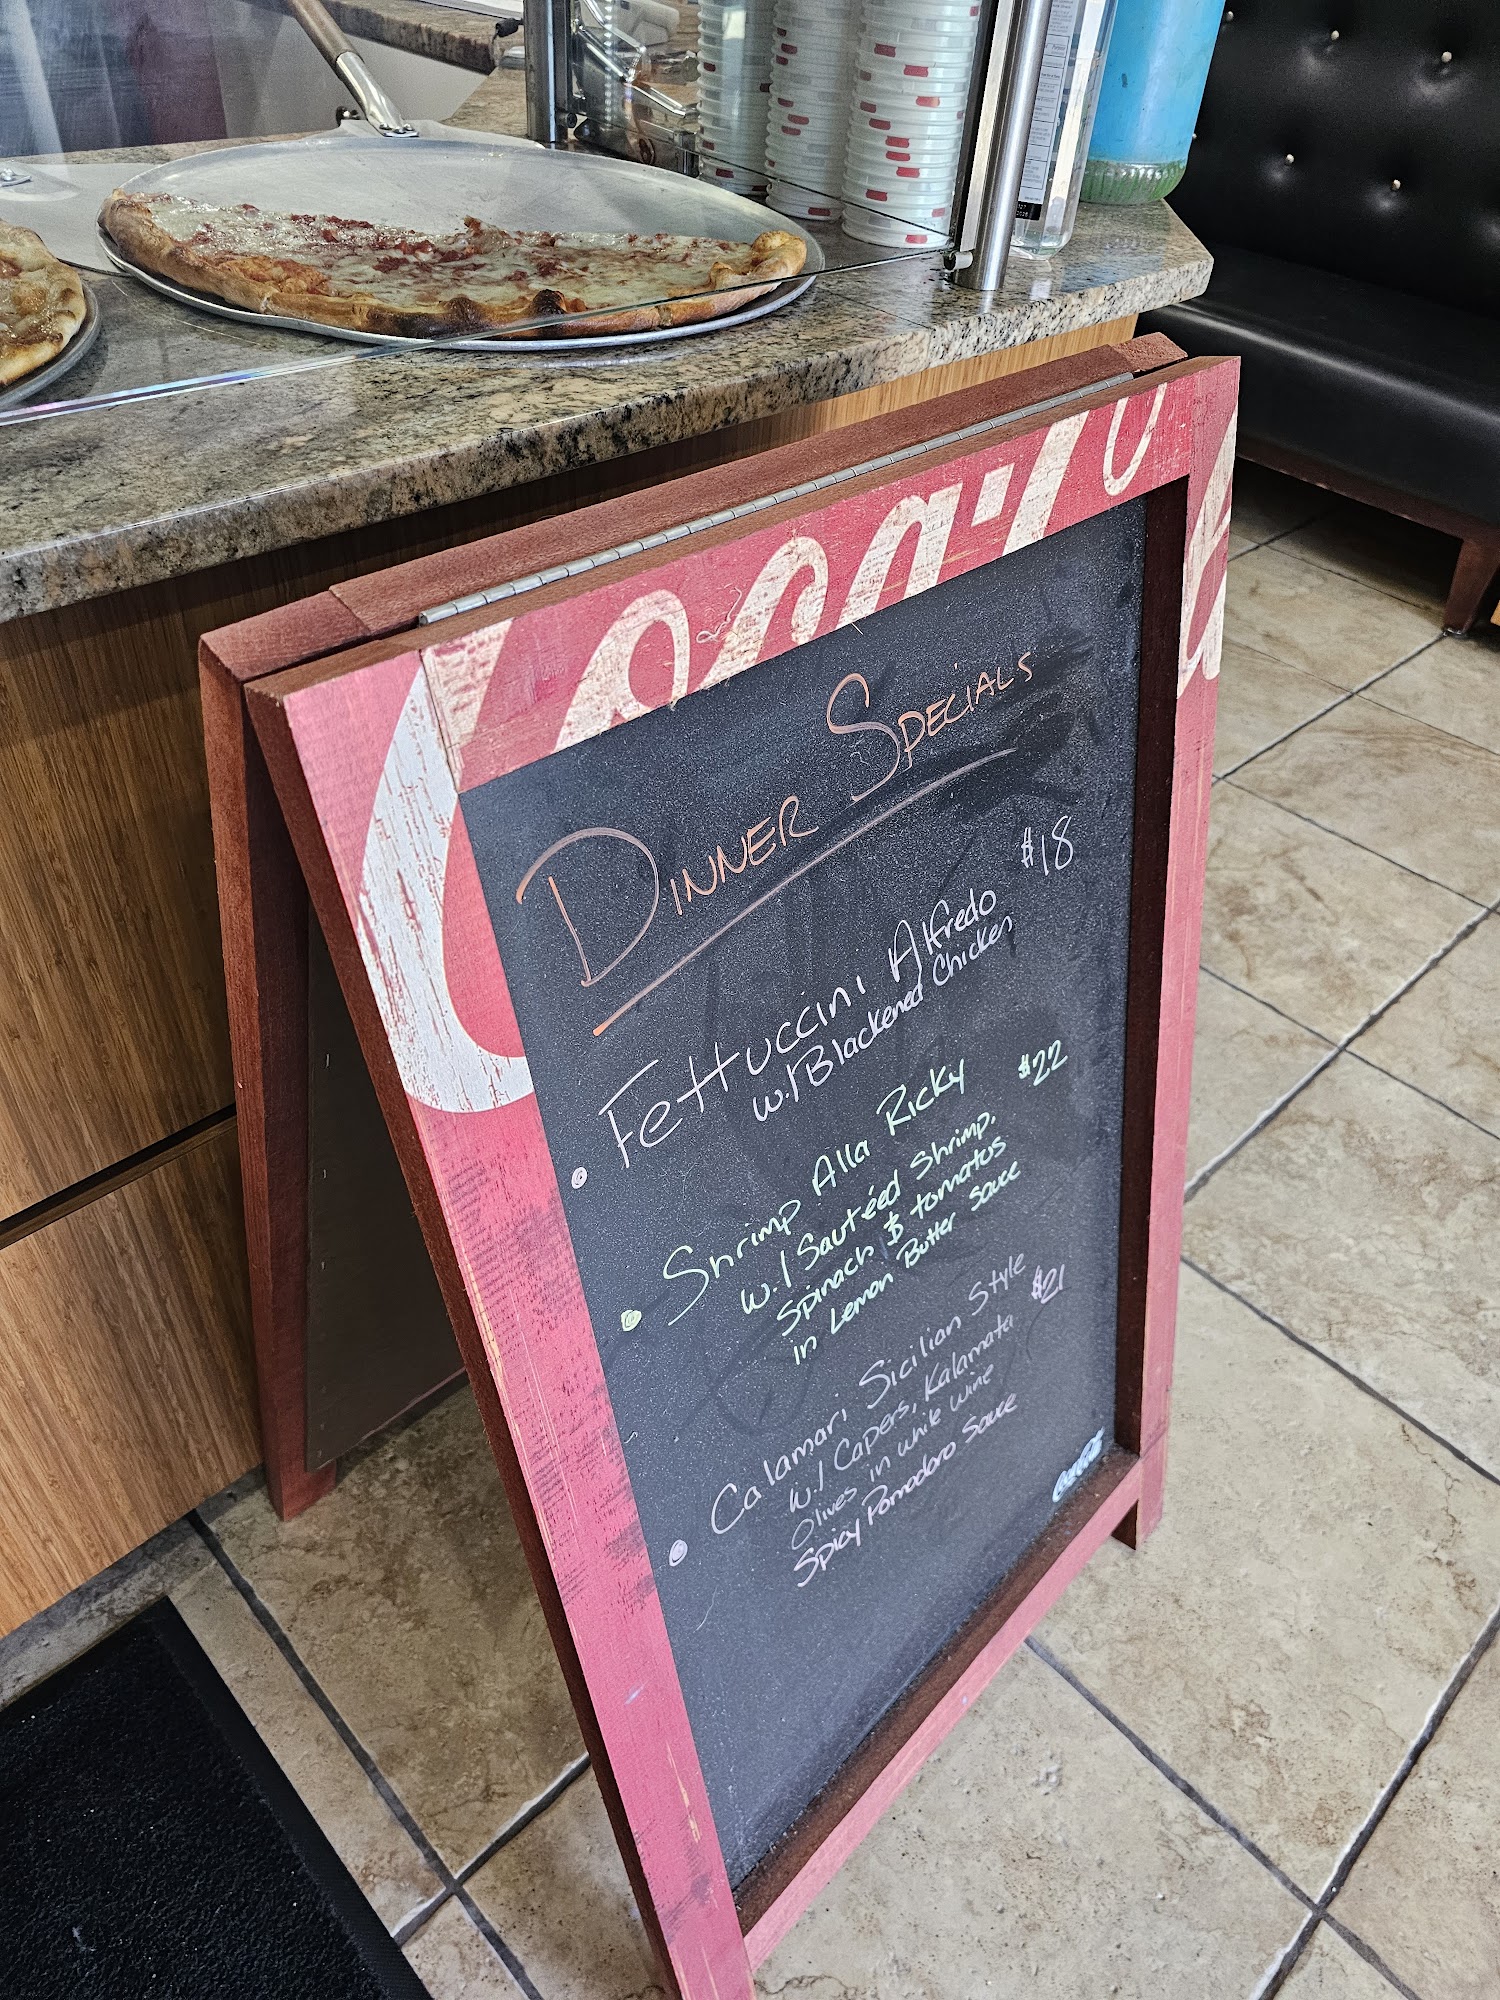 Coca-Co
Dinner Specials
Fettuccini Alfredo $18
w./Blackened Chicken
Shrimp Alla Ricky $22
w./Sautéed Shrimp,
Spinach & tomatos
in Lemon Butter Sauce
Calamari Sicilian Style
w./ Capers, Kalamata $21
Olives in white wine
Spicy Pomodoro Sauce
Coca-Cola